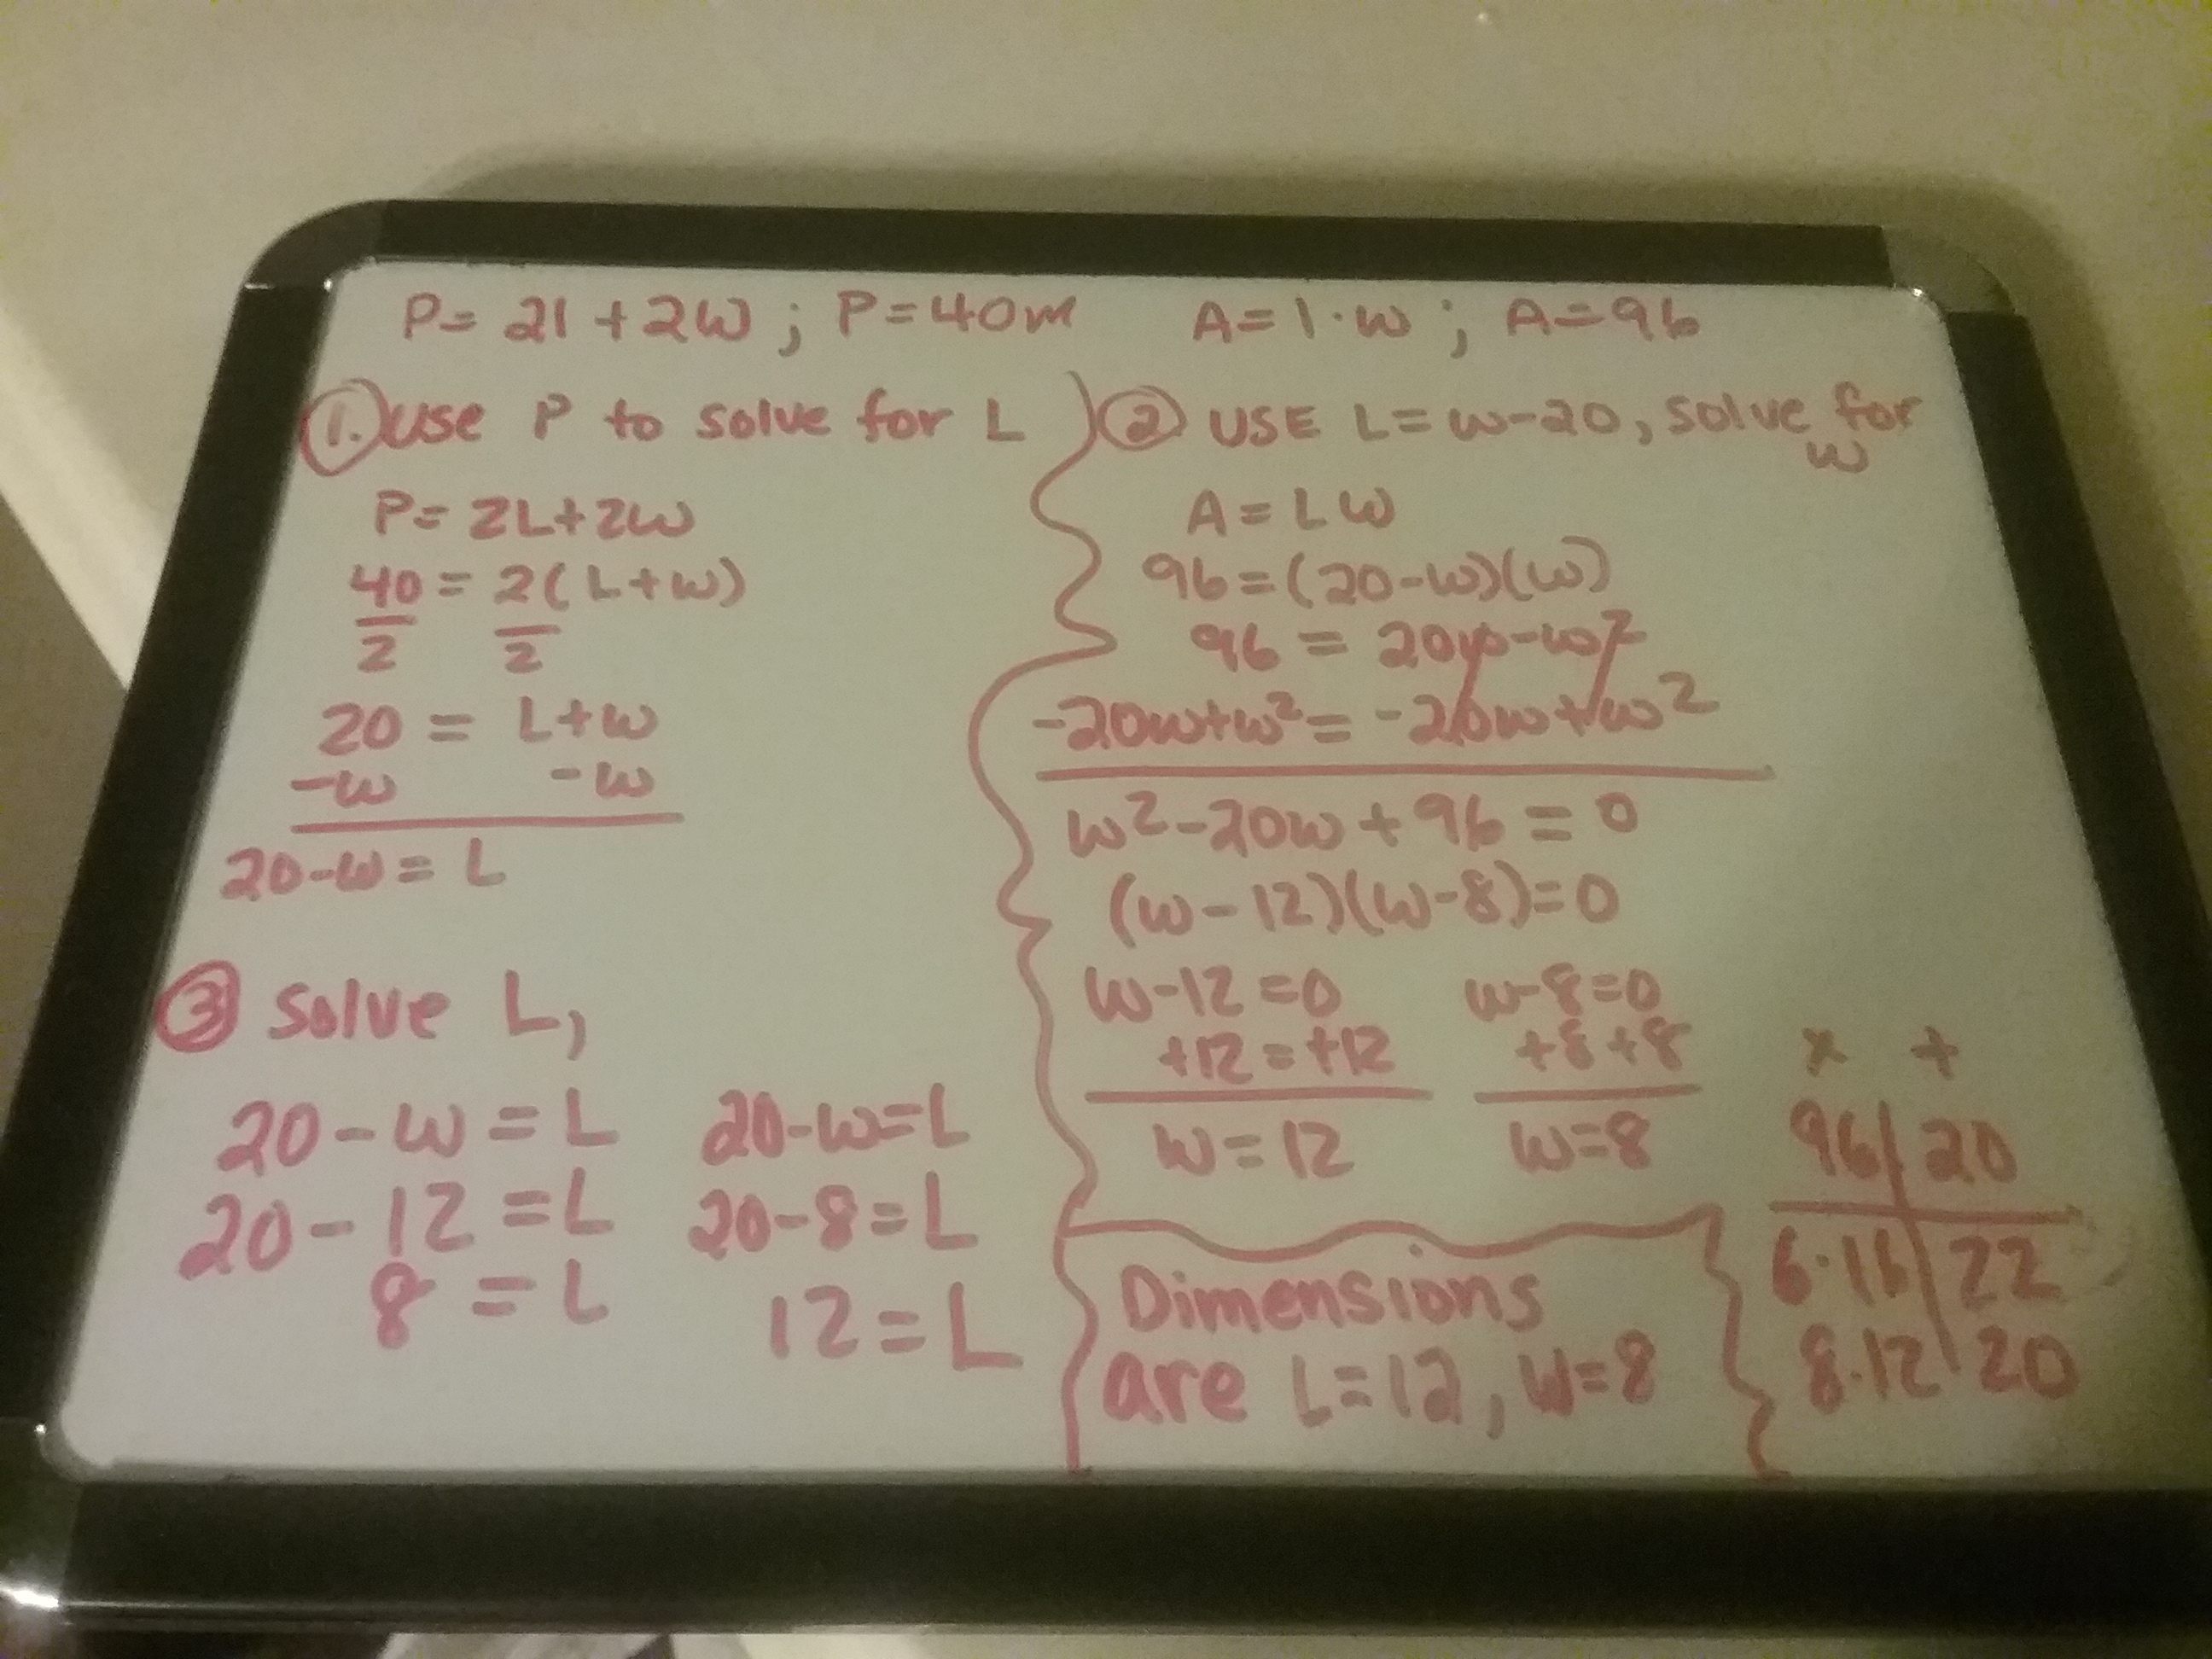 P= 2l + 2w ; P=40m A= l·w ; A=96
1. Use P to solve for L
P= 2L+2w
40 = 2(L+w)
2 2
20 = L+w
-w -w
20-w= L
2 USE L= w-20, solve for
w
A = LW
96=(20-w)(w)
96 = 20w-w²
-20w+w²= -20w+w²
w²-20w+96=0
(w-12)(w-8)=0
w-12=0 w-8=0
+12=+12 +8 +8
w=12 w=8
x +
96 20
6·16 22
8·12 20
3 Solve L,
20-w=L 20-w=L
20-12=L 20-8=L
8=L 12=L
Dimensions
are L=12, W=8